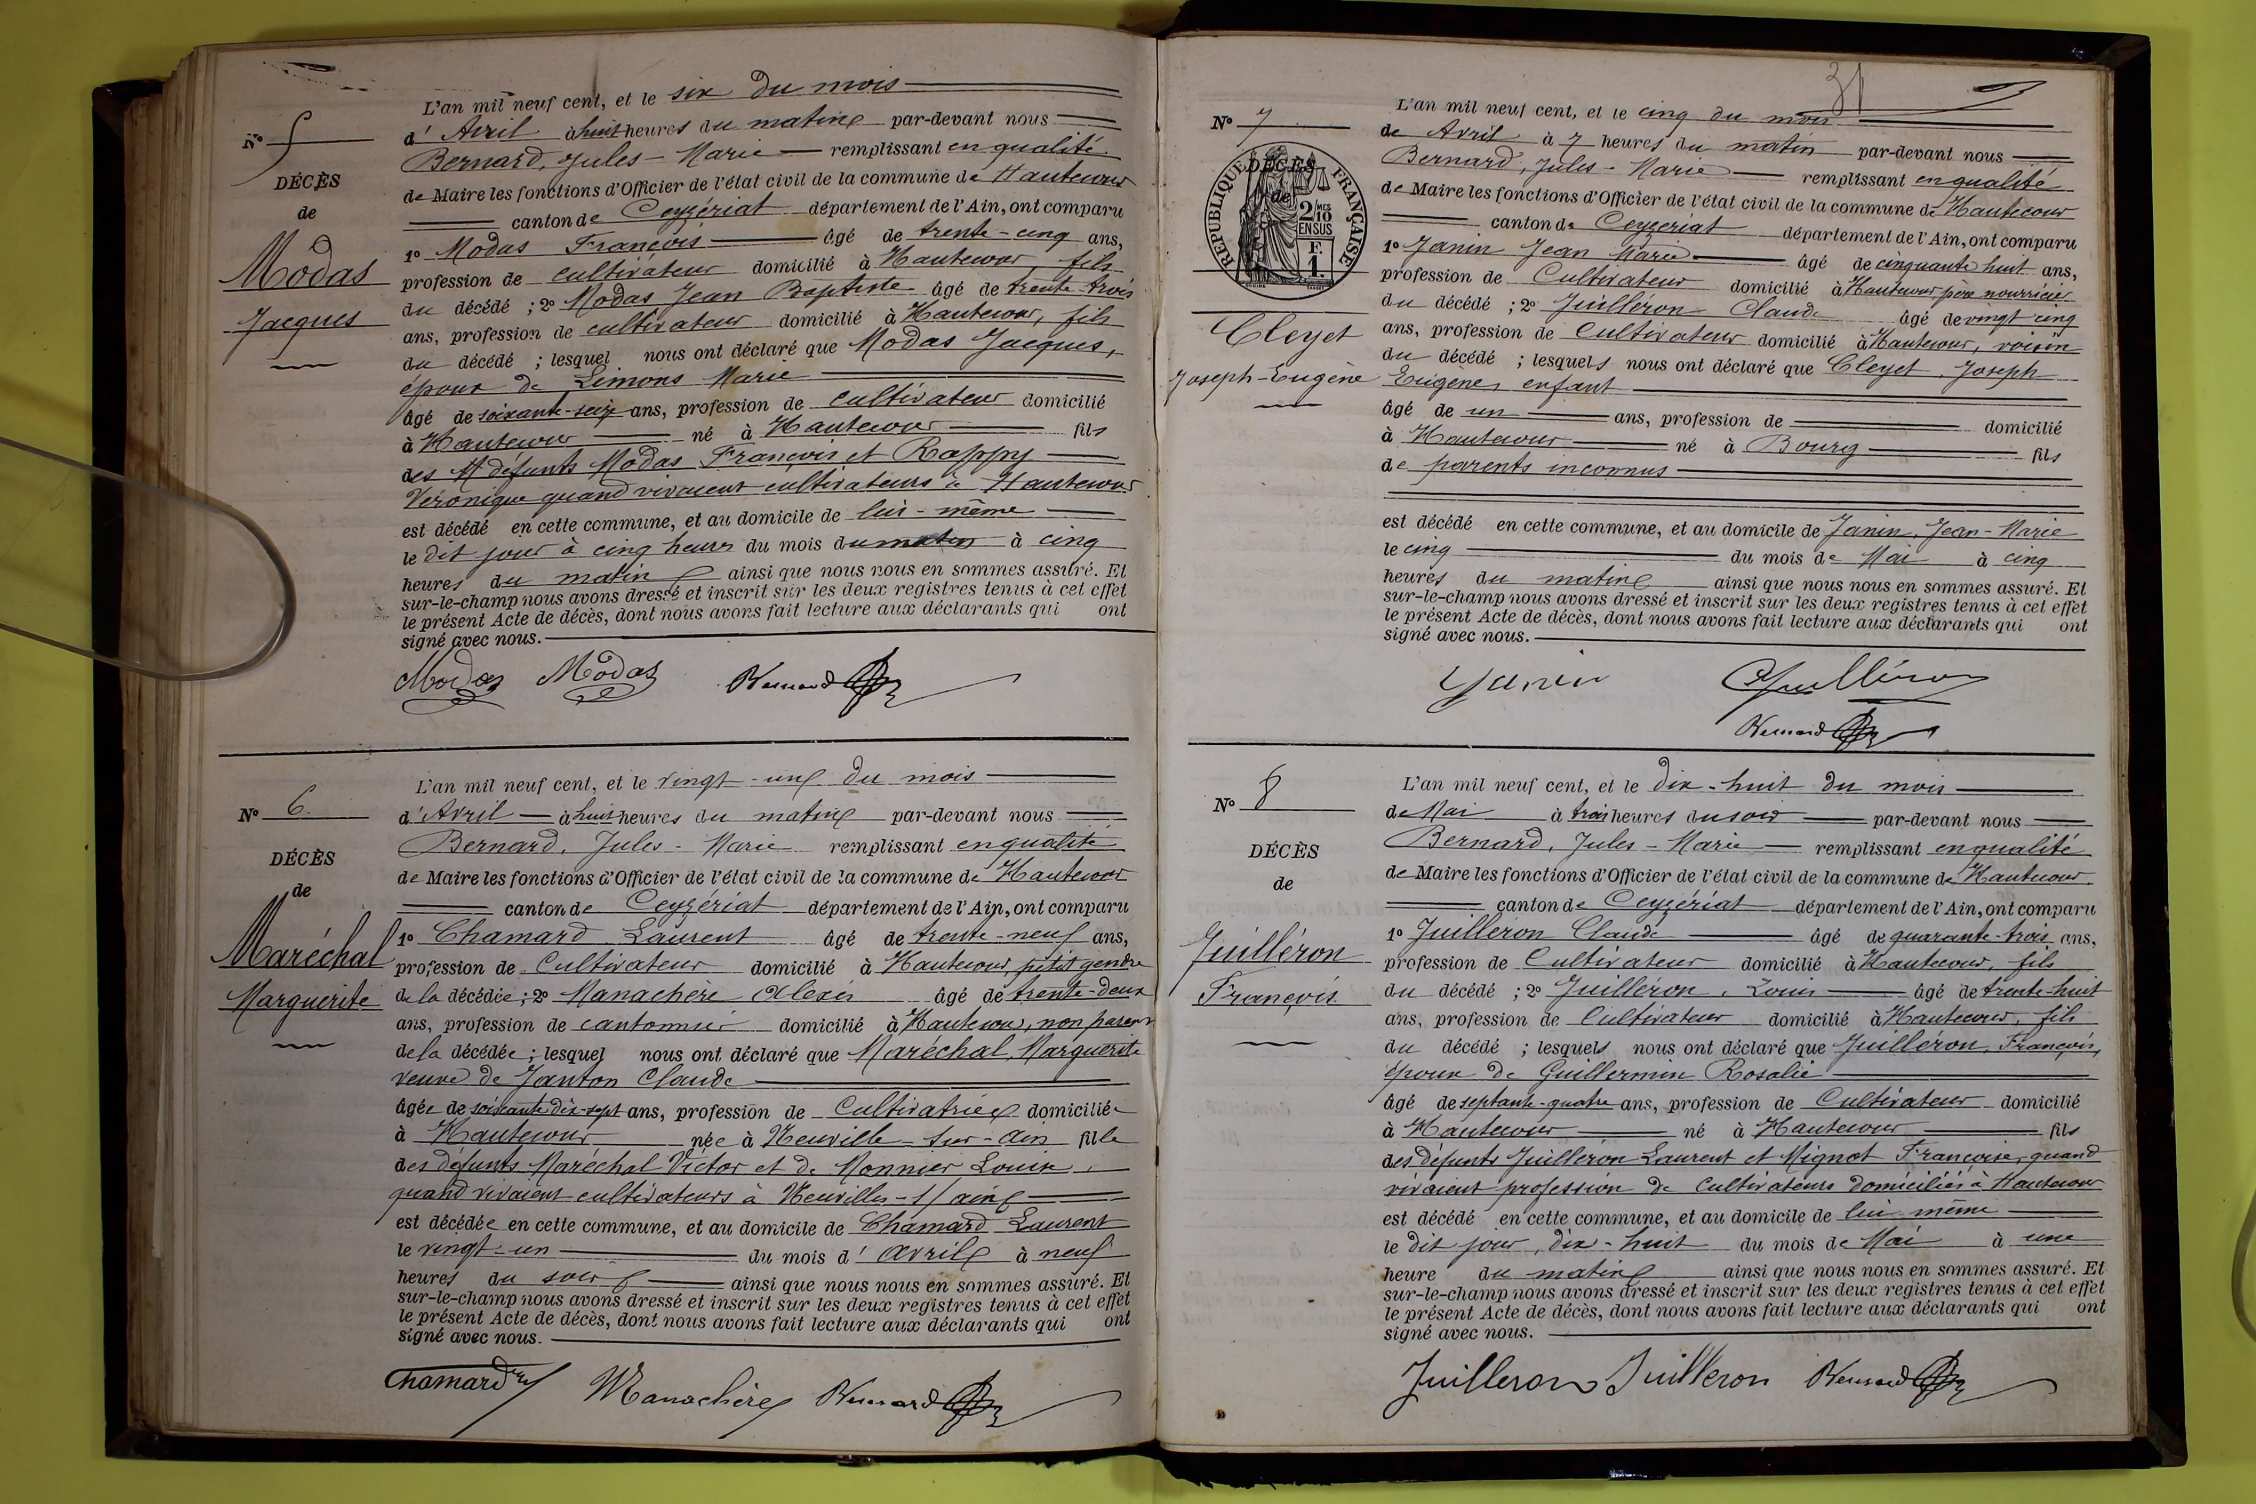 L'an mil neuf cent, et le six du mois
N° 5
d'Avril à huit heures du matin par-devant nous
Bernard, Jules-Marie remplissant en qualité
DÉCÈS
de Maire les fonctions d'Officier de l'état civil de la commune de Hautecour
de
canton de Ceyzériat département de l'Ain, ont comparu
Modas
1° Modas François âgé de trente-cinq ans,
profession de cultivateur domicilié à Hautecour, fils
Jacques
du décédé ; 2° Modas Jean Baptiste âgé de trente-trois
ans, profession de cultivateur domicilié à Hautecour, fils
du décédé ; lesquel nous ont déclaré que Modas Jacques,
époux de Limons Marie
âgé de soixante-seize ans, profession de cultivateur domicilié
à Hautecour né à Hautecour fils
des défunts Modas François et Rappy
Véronique quand vivaient cultivateurs à Hautecour
est décédé en cette commune, et au domicile de lui-même
le dit jour à cinq heures du mois du matin à cinq
heures du matin ainsi que nous nous en sommes assuré. Et
sur-le-champ nous avons dressé et inscrit sur les deux registres tenus à cet effet
le présent Acte de décès, dont nous avons fait lecture aux déclarants qui ont
signé avec nous.
Modas Modas Bernard
L'an mil neuf cent, et le vingt-un du mois
N° 6.
d'Avril à huit heures du matin par-devant nous
Bernard, Jules-Marie remplissant en qualité
DÉCÈS
de Maire les fonctions d'Officier de l'état civil de la commune de Hautecour
de
canton de Ceyzériat département de l'Ain, ont comparu
Maréchal
1° Chamard Laurent âgé de trente-neuf ans,
profession de Cultivateur domicilié à Hautecour, petit gendre
Marguerite
de la décédée ; 2° Manachère Alexis âgé de trente-deux
ans, profession de cantonnier domicilié à Hautecour, non parent
de la décédée ; lesquel nous ont déclaré que Maréchal Marguerite
veuve de Janton Claude
âgée de soixante dix-sept ans, profession de Cultivatrice domiciliée
à Hautecour née à Neuville-sur-Ain fille
des défunts Maréchal Victor et de Monnier Louise
quand vivaient cultivateurs à Neuville-s/ain
est décédée en cette commune, et au domicile de Chamard Laurent
le vingt-un du mois d'avril à neuf
heures du soir ainsi que nous nous en sommes assuré. Et
sur-le-champ nous avons dressé et inscrit sur les deux registres tenus à cet effet
le présent Acte de décès, dont nous avons fait lecture aux déclarants qui ont
signé avec nous.
Chamard Manachère Bernard
31
L'an mil neuf cent, et le cinq du mois
N° 7
de Avril à 7 heures du matin par-devant nous
Bernard, Jules-Marie remplissant en qualité
DÉCÈS
de
RÉPUBLIQUE FRANÇAISE
2/10 MES EN SUS
F. 1.
de Maire les fonctions d'Officier de l'état civil de la commune de Hautecour
canton de Ceyzeriat département de l'Ain, ont comparu
1° Janin Jean Marie âgé de cinquante huit ans,
profession de Cultivateur domicilié à Hautecour, père nourricier
du décédé ; 2° Juilléron Claude âgé de vingt cinq
Cleyet
ans, profession de Cultivateur domicilié à Hautecour, voisin
du décédé ; lesquels nous ont déclaré que Cleyet, Joseph
Joseph-Eugène
Eugène, enfant
âgé de un ans, profession de domicilié
à Hautecour né à Bourg fils
de parents inconnus
est décédé en cette commune, et au domicile de Janin, Jean-Marie
le cinq du mois de Mai à cinq
heures du matin ainsi que nous nous en sommes assuré. Et
sur-le-champ nous avons dressé et inscrit sur les deux registres tenus à cet effet
le présent Acte de décès, dont nous avons fait lecture aux déclarants qui ont
signé avec nous.
Janin Juilléron
Bernard
L'an mil neuf cent, et le dix-huit du mois
N° 8
de Mai à trois heures du soir par-devant nous
Bernard, Jules-Marie remplissant en qualité
DÉCÈS
de Maire les fonctions d'Officier de l'état civil de la commune de Hautecour.
de
canton de Ceyzériat département de l'Ain, ont comparu
1° Juilléron Claude âgé de quarante-trois ans,
Juilléron
profession de Cultivateur domicilié à Hautecour, fils
François
du décédé ; 2° Juilléron, Louis âgé de trente-huit
ans, profession de Cultivateur domicilié à Hautecour, fils
du décédé ; lesquels nous ont déclaré que Juilléron, François,
époux de Guillermin Rosalie
âgé de septante-quatre ans, profession de Cultivateur domicilié
à Hautecour né à Hautecour fils
des défunts Juilléron Laurent et Mignot Françoise, quand
vivaient profession de Cultivateurs domiciliés à Hautecour
est décédé en cette commune, et au domicile de lui même
le dit jour, dix-huit du mois de Mai à une
heure du matin ainsi que nous nous en sommes assuré. Et
sur-le-champ nous avons dressé et inscrit sur les deux registres tenus à cet effet
le présent Acte de décès, dont nous avons fait lecture aux déclarants qui ont
signé avec nous.
Juilleron Juilleron Bernard